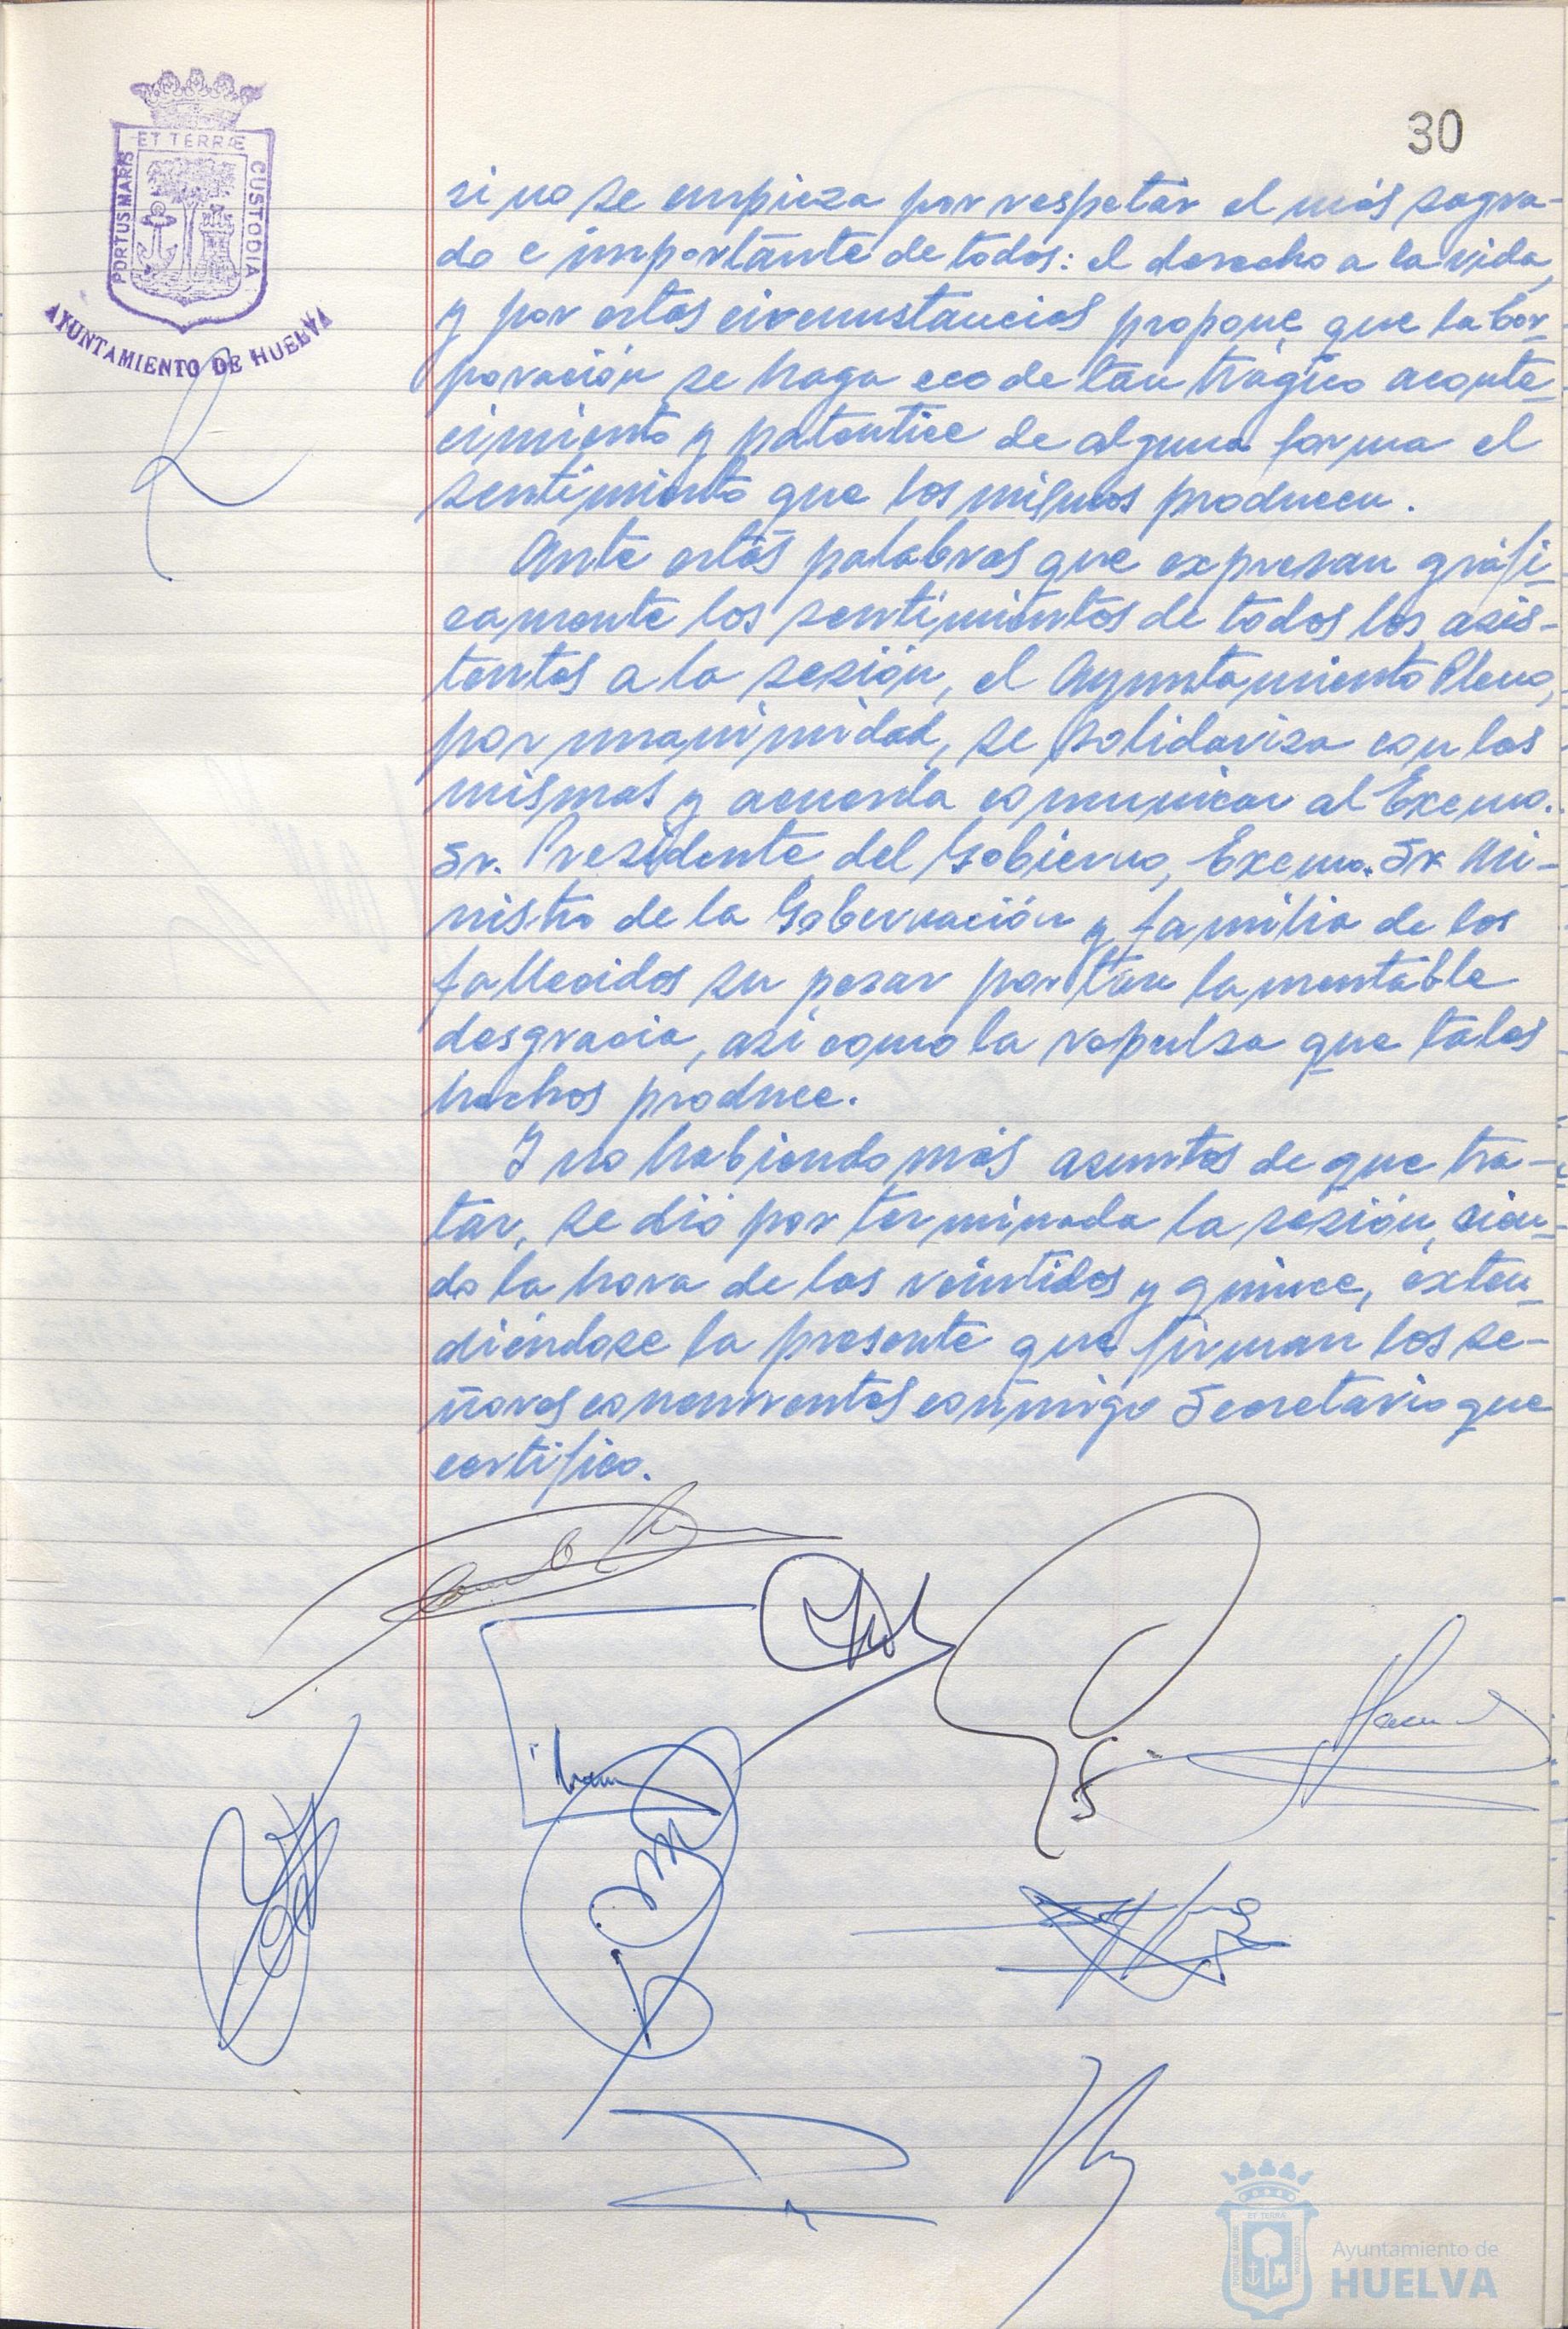 30
ET TERRÆ
PORTUS MARIS
CUSTODIA
AYUNTAMIENTO DE HUELVA
si no se empieza por respetar el más sagra-
do e importante de todos: el derecho a la vida,
y por estas circunstancias propone que la Cor-
poración se haga eco de tan trágico aconte-
cimiento y patentice de alguna forma el
sentimiento que los mismos producen.
Ante estas palabras que expresan gráfi-
camente los sentimientos de todos los asis-
tentes a la sesión, el Ayuntamiento Pleno,
por unanimidad, se solidariza con las
mismas y acuerda comunicar al Excmo.
Sr. Presidente del Gobierno, Excmo. Sr. Mi-
nistro de la Gobernación y familia de los
fallecidos su pesar por tan lamentable
desgracia, así como la repulsa que tales
hechos produce.
Y no habiendo más asuntos de que tra-
tar, se dió por terminada la sesión, sien-
do la hora de las veintidos y quince, exten-
diéndose la presente que firman los se-
ñores concurrentes conmigo Secretario que
certifico.
Ayuntamiento de
HUELVA